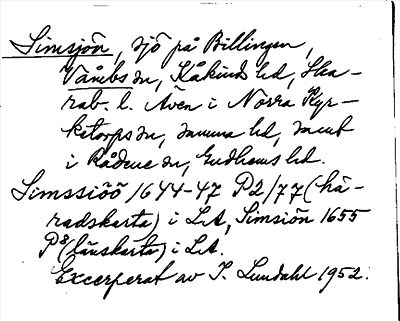 Simsjön, sjö på Billingen,
Våmbs sn, Kåkinds hd, Ska-
rab. l. Även i Norra Kyr-
ketorps sn, samma hd, samt
i Rådene sn, Gudhems hd.
Simssiöö 1644-47 P2/77 (hä-
radskarta) i LA, Simsiön 1655
P8 (länskarta) i LA.
Excerperat av I. Lundahl 1952.